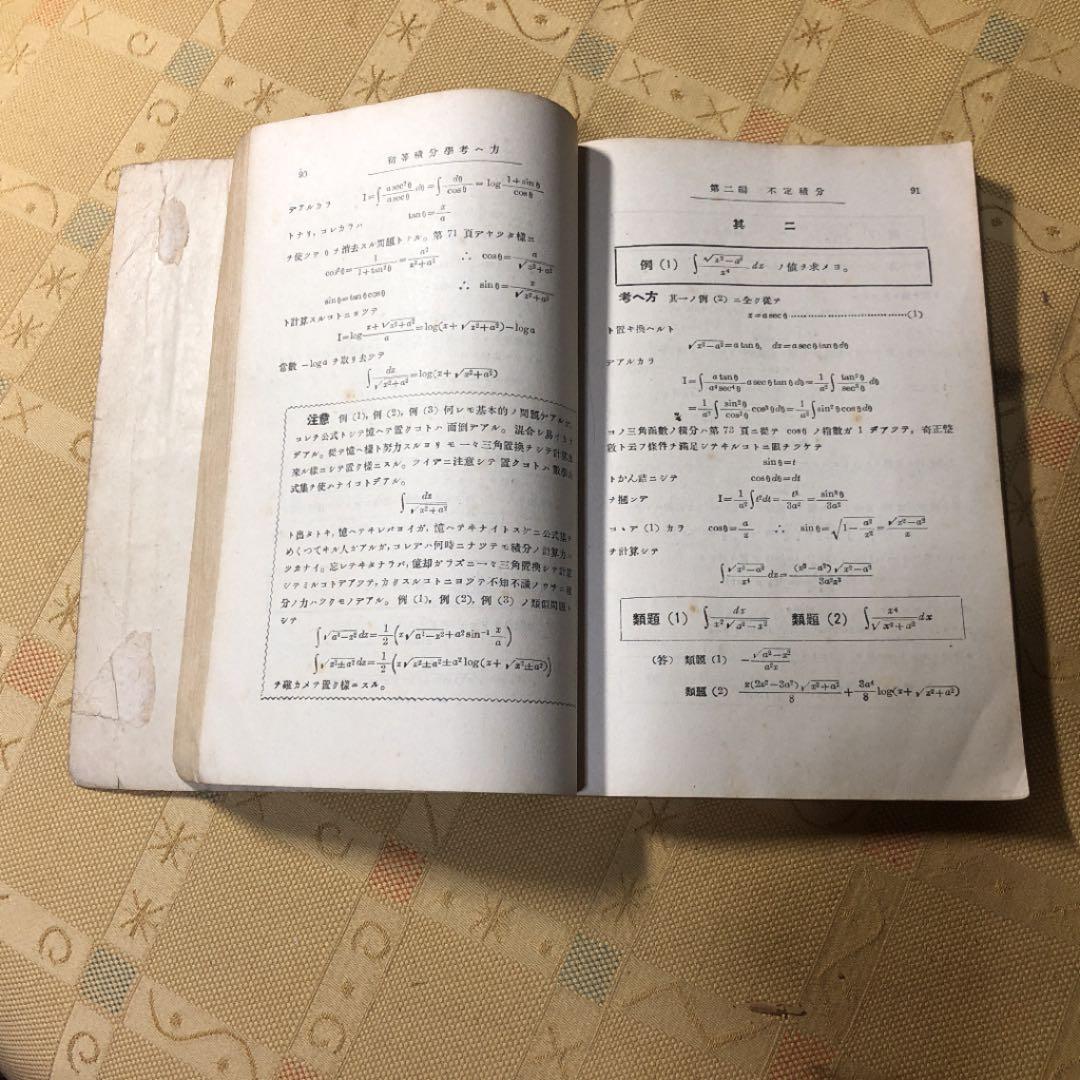 90
初等積分學考ヘ方
デアルカラ I=∫(a sec²θ)/(a secθ) dθ=∫dθ/cosθ = log (1+sinθ)/cosθ
トナリ, コレカラハ tanθ=x/a
ヲ使ツテ θ ヲ消去スル問題トナル。第 71 頁デヤツタ様ニ
cos²θ=1/(1+tan²θ)=a²/(x²+a²) ∴ cosθ=a/√(x²+a²)
sinθ=tanθcosθ ∴ sinθ=x/√(x²+a²)
ト計算スルコトニヨツテ
I=log (x+√(x²+a²))/a=log(x+√(x²+a²))−log a
常數 −log a ヲ取リ去ツテ
∫dx/√(x²+a²)=log(x+√(x²+a²))
注意 例 (1), 例 (2), 例 (3) 何レモ基本的ノ問題デアルガ,
コレヲ公式トシテ憶ヘテ置クコトハ面倒デアル。混合シ易イカラ
デアル。從テ憶ヘ樣ト努力スルヨリモ一々三角置換ヲシテ計算出
來ル樣ニシテ置ク樣ニスル。ツイデニ注意シテ置クコトハ數學公
式集ヲ使ハナイコトデアル。
∫dx/√(x²+a²)
ト出タトキ, 憶ヘテヰレバヨイガ, 憶ヘテヰナイトスグニ公式集ヲ
めくつてヰル人ガアルガ, コレデハ何時ニナツテモ積分ノ計算力ハ
ツカナイ。忘レテヰタナラバ, 億却ガラズニ一々三角置換シテ計算
シテミルコトデアツテ, カクスルコトニヨツテ不知不識ノウチニ積
分ノ力ハツクモノデアル。例 (1), 例 (2), 例 (3) ノ類似問題ト
シテ
∫√(a²−x²) dx=1/2(x√(a²−x²)+a² sin⁻¹ x/a)
∫√(x²±a²) dx=1/2(x√(x²±a²)±a² log(x+√(x²±a²)))
ヲ確カメテ置ク樣ニスル。
第二編 不定積分
91
其 二
例 (1) ∫√(x²−a²)/x⁴ dx ノ値ヲ求メヨ。
考ヘ方 其一ノ例 (2) ニ全ク從テ
x=a secθ ……………………………(1)
ト置キ換ヘルト
√(x²−a²)=a tanθ, dx=a secθ tanθ dθ
デアルカラ
I=∫(a tanθ)/(a⁴ sec⁴θ) a secθ tanθ dθ=1/a² ∫tan²θ/sec³θ dθ
=1/a² ∫sin²θ/cos²θ cos³θ dθ=1/a² ∫sin²θ cosθ dθ
コノ三角函數ノ積分ハ第 73 頁ニ從テ cosθ ノ指數ガ 1 デアツテ, 奇正整
數ト云フ條件ヲ滿足シテヰルコトニ眼ヲツケテ
sinθ=t
トかん詰ニシテ cosθdθ=dt
ヲ摑ンデ I=1/a² ∫t²dt=t³/3a²=sin³θ/3a²
コヽデ (1) カラ cosθ=a/x ∴ sinθ=√(1−a²/x²)=√(x²−a²)/x
ヲ計算シテ
∫√(x²−a²)/x⁴ dx=(x²−a²)√(x²−a²)/3a²x³
類題 (1) ∫dx/(x²√(a²−x²)) 類題 (2) ∫x⁴/√(x²+a²) dx
(答) 類題 (1) −√(a²−x²)/a²x
類題 (2) x(2x²−3a²)√(x²+a²)/8 + 3a⁴/8 log(x+√(x²+a²))